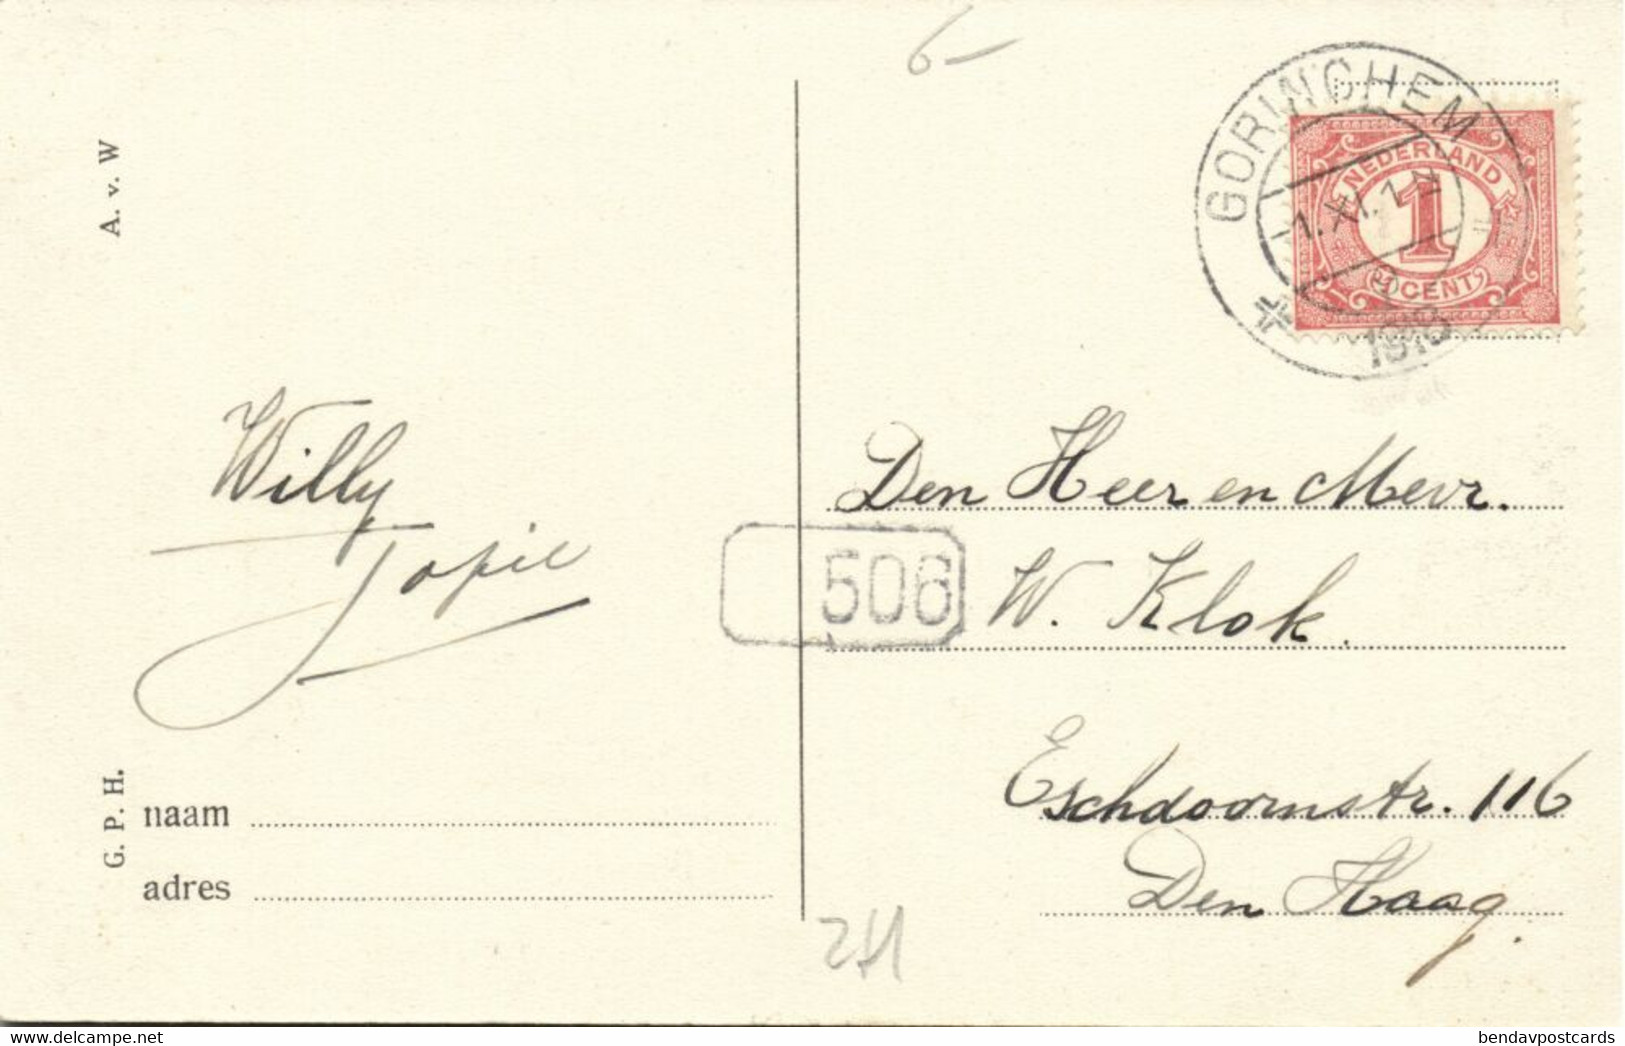 6-
GORINCHEM
1.XI.1 N
1918
NEDERLAND
1
CENT
A. v. W
Willy
Jopie
506
Den Heer en Mevr.
W. Klok.
Eschdoornstr. 116
Den Haag.
G. P. H.
naam
adres
bendavpostcards